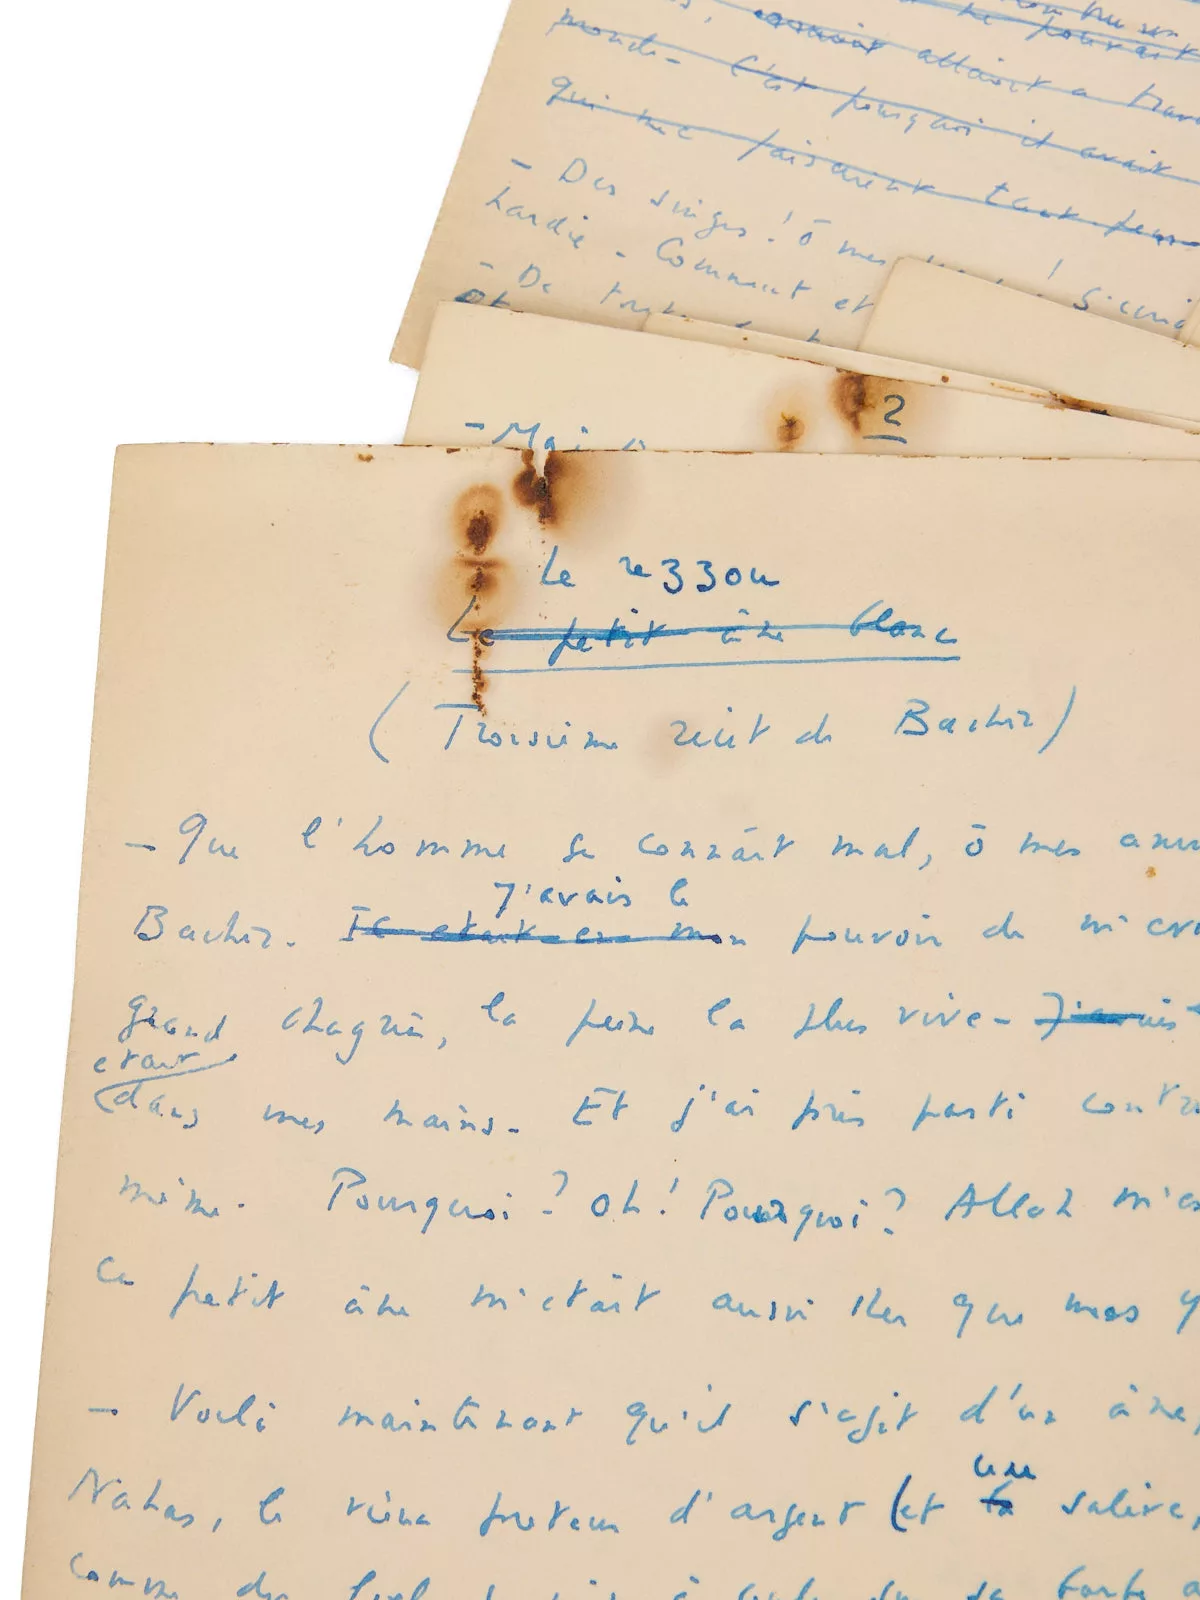 ne pouvait
allait a trav
monde. C'est pourquoi il avait
qui me faisaient tant
- Des singes! ô mes
hardie - Comment et
- De
2
- Mai
Le rezzou
Le petit âne blanc
(Troisième récit de Bachir)
- Que l'homme se connaît mal, ô mes ami
J'avais le
Bachir. Il était en mon pouvoir de m'
grand chagrin, la peine la plus vive - J'avais
était
dans mes mains. Et j'ai pris parti contre
même. Pourquoi? Oh! Pourquoi? Allah m'
Ce petit âne m'était aussi cher que mes y
- Voilà maintenant qu'il s'agit d'un âne,
une
Nahas, le vieux preteur d'argent (et la salive,
comme des sa barbe